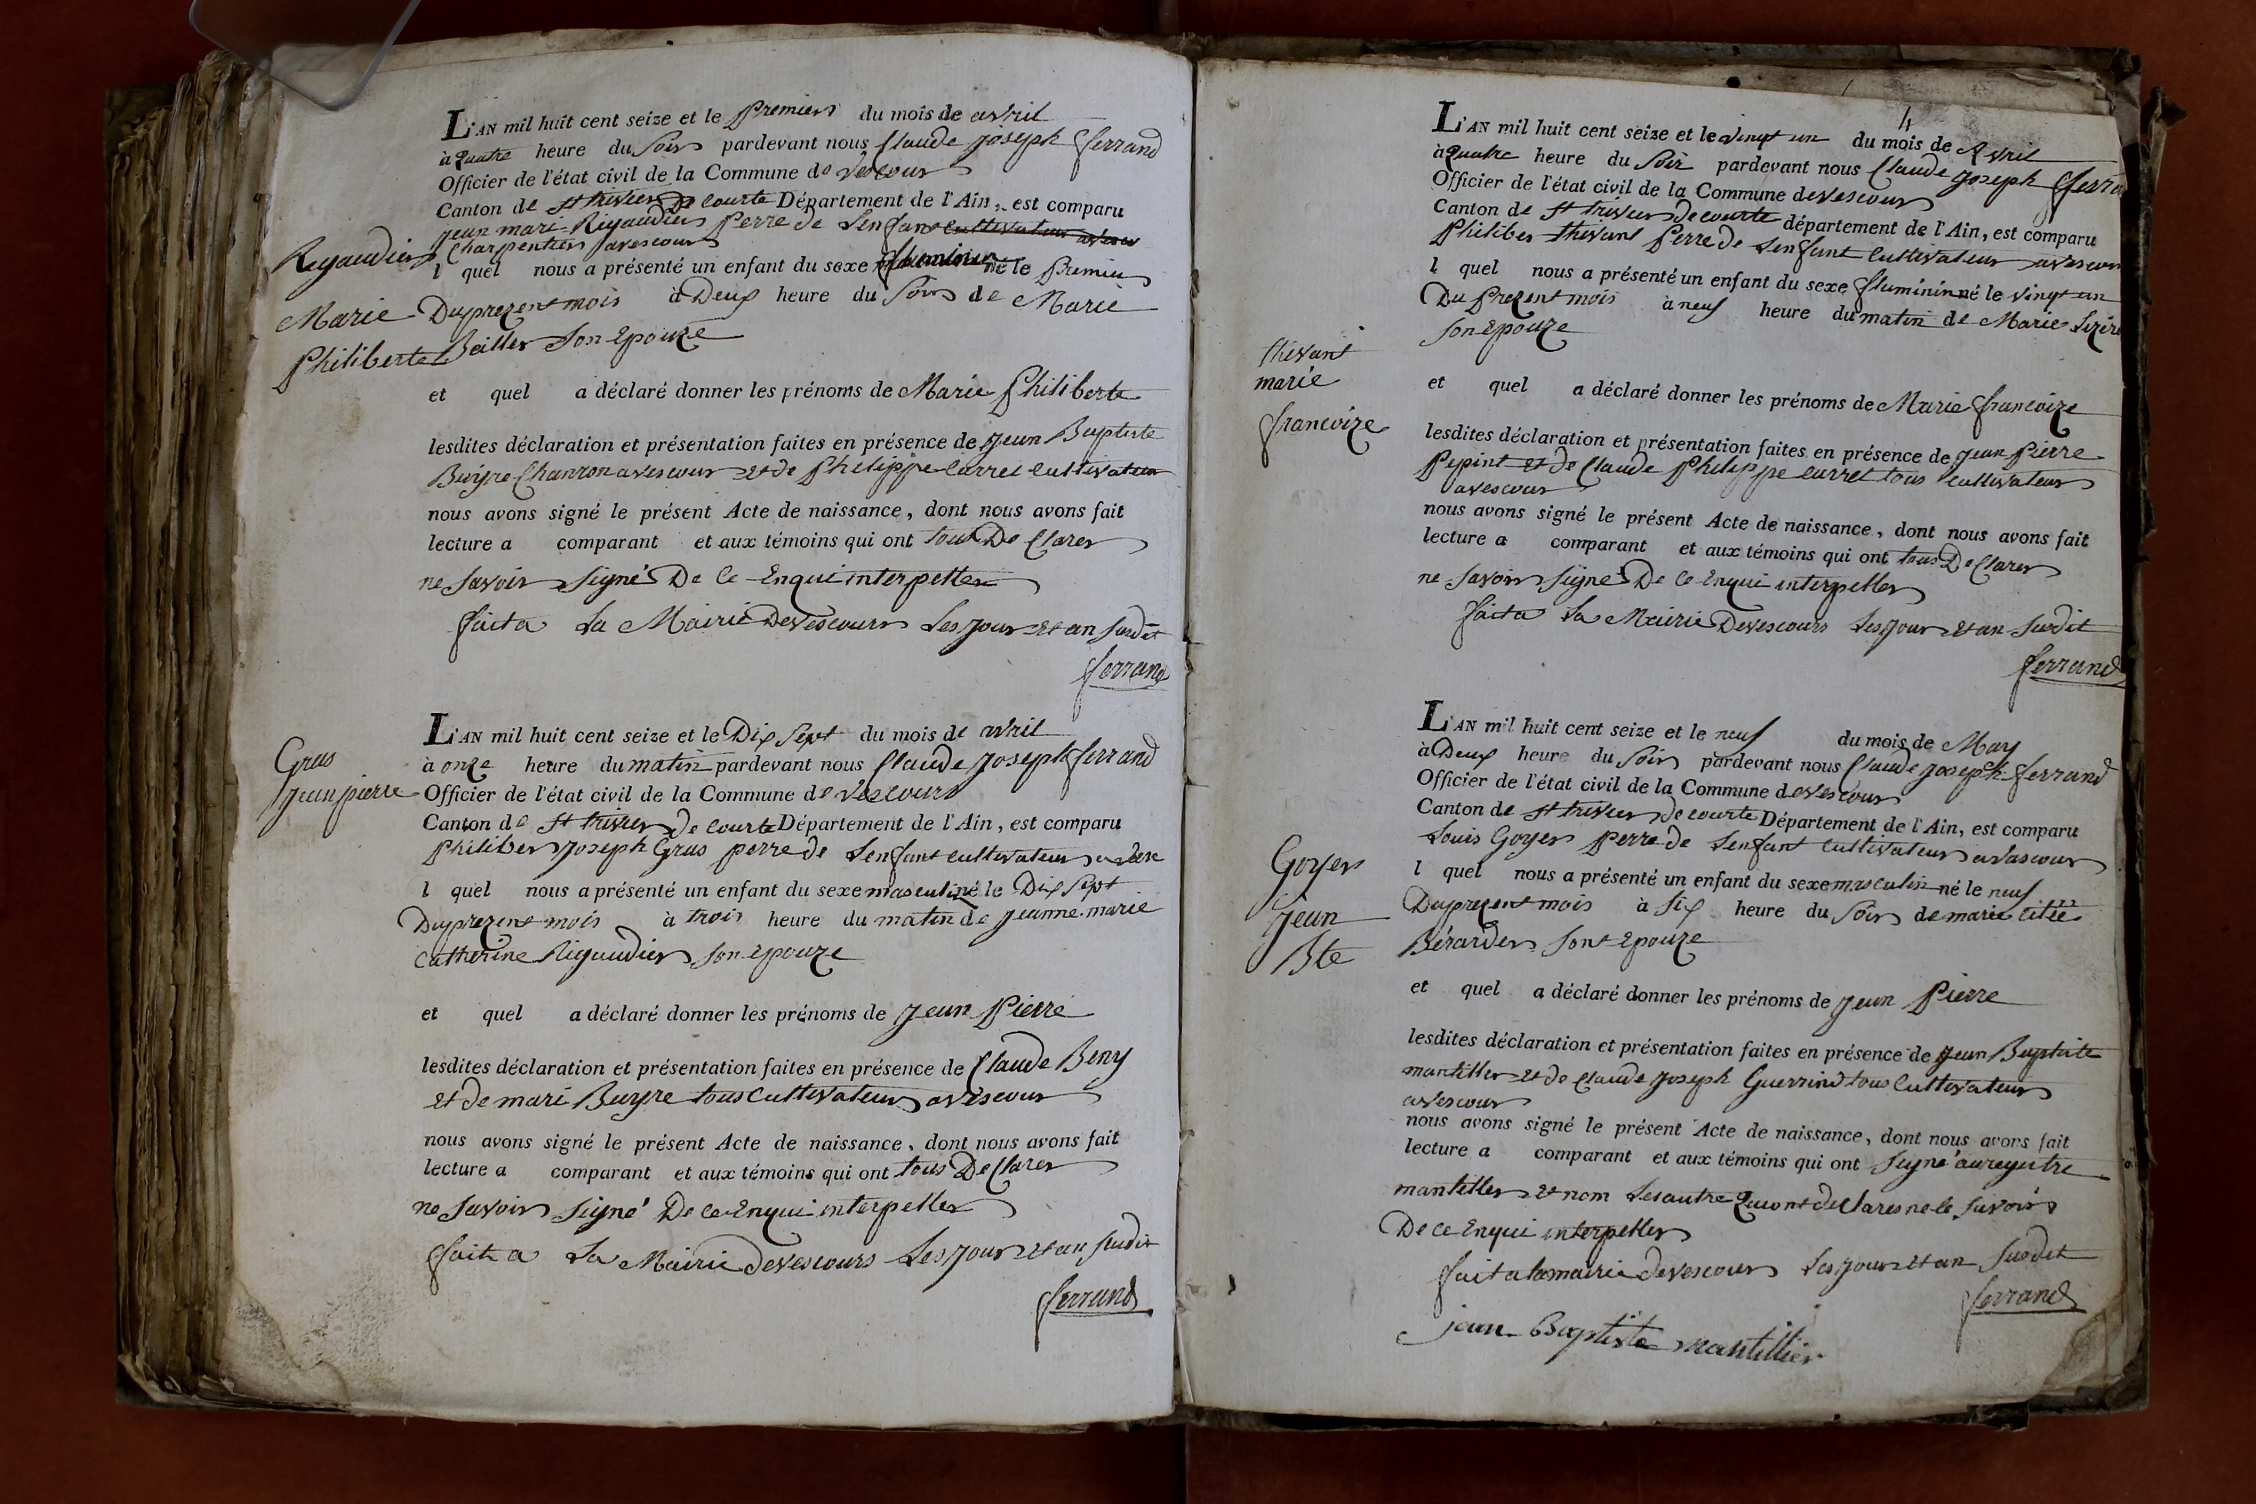 L'AN mil huit cent seize et le premier du mois de avril
à quatre heure du soir pardevant nous Claude joseph fferrand
Officier de l'état civil de la Commune de vescour
Canton de st trivier De courte Département de l'Ain, est comparu
jean mari Rigaudier perre de Lenfant cultivateur avescour
Charpentier avescour
l quel nous a présenté un enfant du sexe né le premier
Du prezent mois à Deux heure du soir de Marie
Beiller son Epouze
et quel a déclaré donner les prénoms de Marie philiberte
lesdites déclaration et présentation faites en présence de jean Baptiste
Buyre Chanron avescour et de philippe carrel cultivateur
nous avons signé le présent Acte de naissance, dont nous avons fait
lecture a comparant et aux témoins qui ont tous De Clarer
ne savoir signé De ce Enqui interpeller
ffait a La Mairie Devescours Les jour et an susdit
fferrand
Rigaudier
Marie
philiberte
L'AN mil huit cent seize et le Dix sept du mois de avril
à onze heure du matin pardevant nous Claude joseph fferrand
Officier de l'état civil de la Commune de vescours
Canton de st trivier De courte Département de l'Ain, est comparu
philiber joseph Gras perre de Lenfant cultivateur avesc
l quel nous a présenté un enfant du sexe masculin né le Dix sept
Du prezent mois à trois heure du matin de jeanne marie
catherine Rigaudier son epouze
et quel a déclaré donner les prénoms de jean pierre
lesdites déclaration et présentation faites en présence de Claude Beny
et de mari Buyre tous cultivateur avescour
nous avons signé le présent Acte de naissance, dont nous avons fait
lecture a comparant et aux témoins qui ont tous De Clarer
ne savoir signé De ce Enqui interpeller
ffait a La Mairie devescours Les jour et an susdit
fferrand
Gras
jean pierre
4
L'AN mil huit cent seize et le vingt un du mois de Avril
à quatre heure du soir pardevant nous Claude joseph fferra
Officier de l'état civil de la Commune devescour
Canton de st trivier de courte département de l'Ain, est comparu
philiber thevant perre de Lenfant cultivateur avescour
l quel nous a présenté un enfant du sexe ffuminin né le vingt un
Du prezent mois à neuf heure du matin de Marie
son epouze
et quel a déclaré donner les prénoms de Marie ffrancoize
lesdites déclaration et présentation faites en présence de jean pierre
pepint et de Claude philippe carrel tous cultivateur
avescour
nous avons signé le présent Acte de naissance, dont nous avons fait
lecture a comparant et aux témoins qui ont tous De Clarer
ne savoir signé De ce Enqui interpeller
ffait a La Mairie Devescours Les jour et an susdit
fferrand
thevant
marie
ffrancoize
L'AN mil huit cent seize et le neuf du mois de May
à Deux heure du soir pardevant nous Claude joseph fferrand
Officier de l'état civil de la Commune devescour
Canton de st trivier de courte Département de l'Ain, est comparu
Louis Goyer perre de Lenfant cultivateur avascour
l quel nous a présenté un enfant du sexe masculin né le neuf
Du prezent mois à six heure du soir de marie
Bérarder sont epouze
et quel a déclaré donner les prénoms de jean pierre
lesdites déclaration et présentation faites en présence de jean Baptiste
mantiller et de Claude joseph Guerrind tous cultivateur
avescour
nous avons signé le présent Acte de naissance, dont nous avons fait
lecture a comparant et aux témoins qui ont signé au registre
mantiller et nom Les autre qui ont declares ne le savoir
De ce Enqui interpeller
ffait a la mairie devescour Les jour et an susdit
fferrand
jean Baptiste mantillier
Goyer
jean
Bte